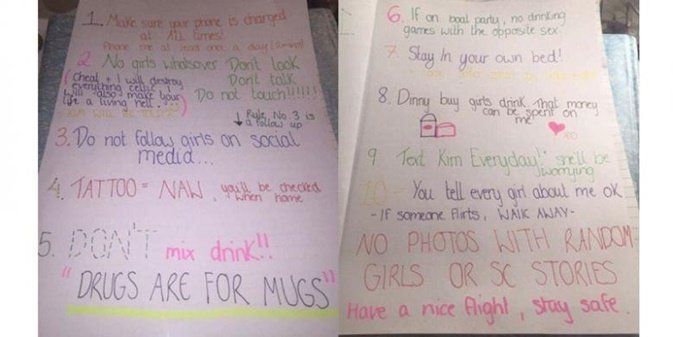 1. Make sure your phone is charged
at All times!
Phone me at least once a day
2. No girls whatsover Don't look
Don't talk
Do not touch!!!!!!
(Cheat + I will destroy
everything celtic I
will also make your
life a living hell...)
↓ Rule, No 3 is
a follow up
3. Do not follow girls on social
media...
4. TATTOO = NAW, you'll be checked
when home
5. DON'T mix drink!!
"DRUGS ARE FOR MUGS"
6. If on boat party, no drinking
games with the opposite sex
7. Stay In your own bed!
8. Dinny buy girls drink. That money
can be spent on
me
9 Text Kim Everyday! she'll be
worrying
10 - You tell every girl about me ok
- If someone flirts, WALK AWAY -
NO PHOTOS WITH RANDOM
GIRLS OR SC STORIES
Have a nice flight, stay safe.